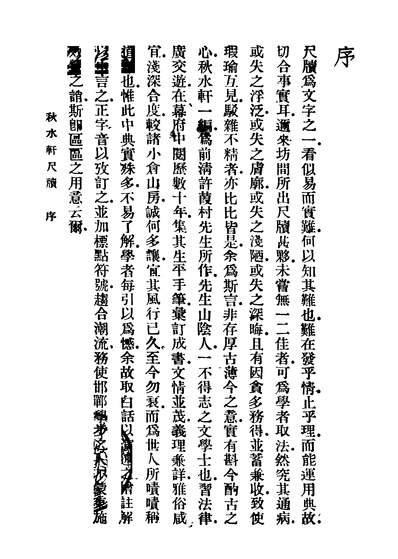 序
尺牘爲文字之一看似易而實難何以知其難也難在發乎情止乎理而能運用典故
切合事實耳邇來坊間所出尺牘甚夥未嘗無一二佳者可爲學者取法然究其通病
或失之浮泛或失之膚廓或失之淺陋或失之深晦且有因貪多務得並蓄兼收致使
瑕瑜互見駁雜不精者亦比比皆是余爲斯言非存厚古薄今之意實有斟今酌古之
心秋水軒一編爲前清許葭村先生所作先生山陰人一不得志之文學士也習法律
廣交遊在幕府中閱歷數十年集其生平手筆彙訂成書文情並茂義理兼詳雅俗咸
宜淺深合度較諸小倉山房誠何多讓宜其風行已久至今勿衰而爲世人所嘖嘖稱
道也惟此中典實殊多不易了解學者每引以爲憾余故取白話以註解
言之正字音以攷訂之並加標點符號趨合潮流務使邯鄲學步施
之誚斯即區區之用意云爾
秋水軒尺牘 序